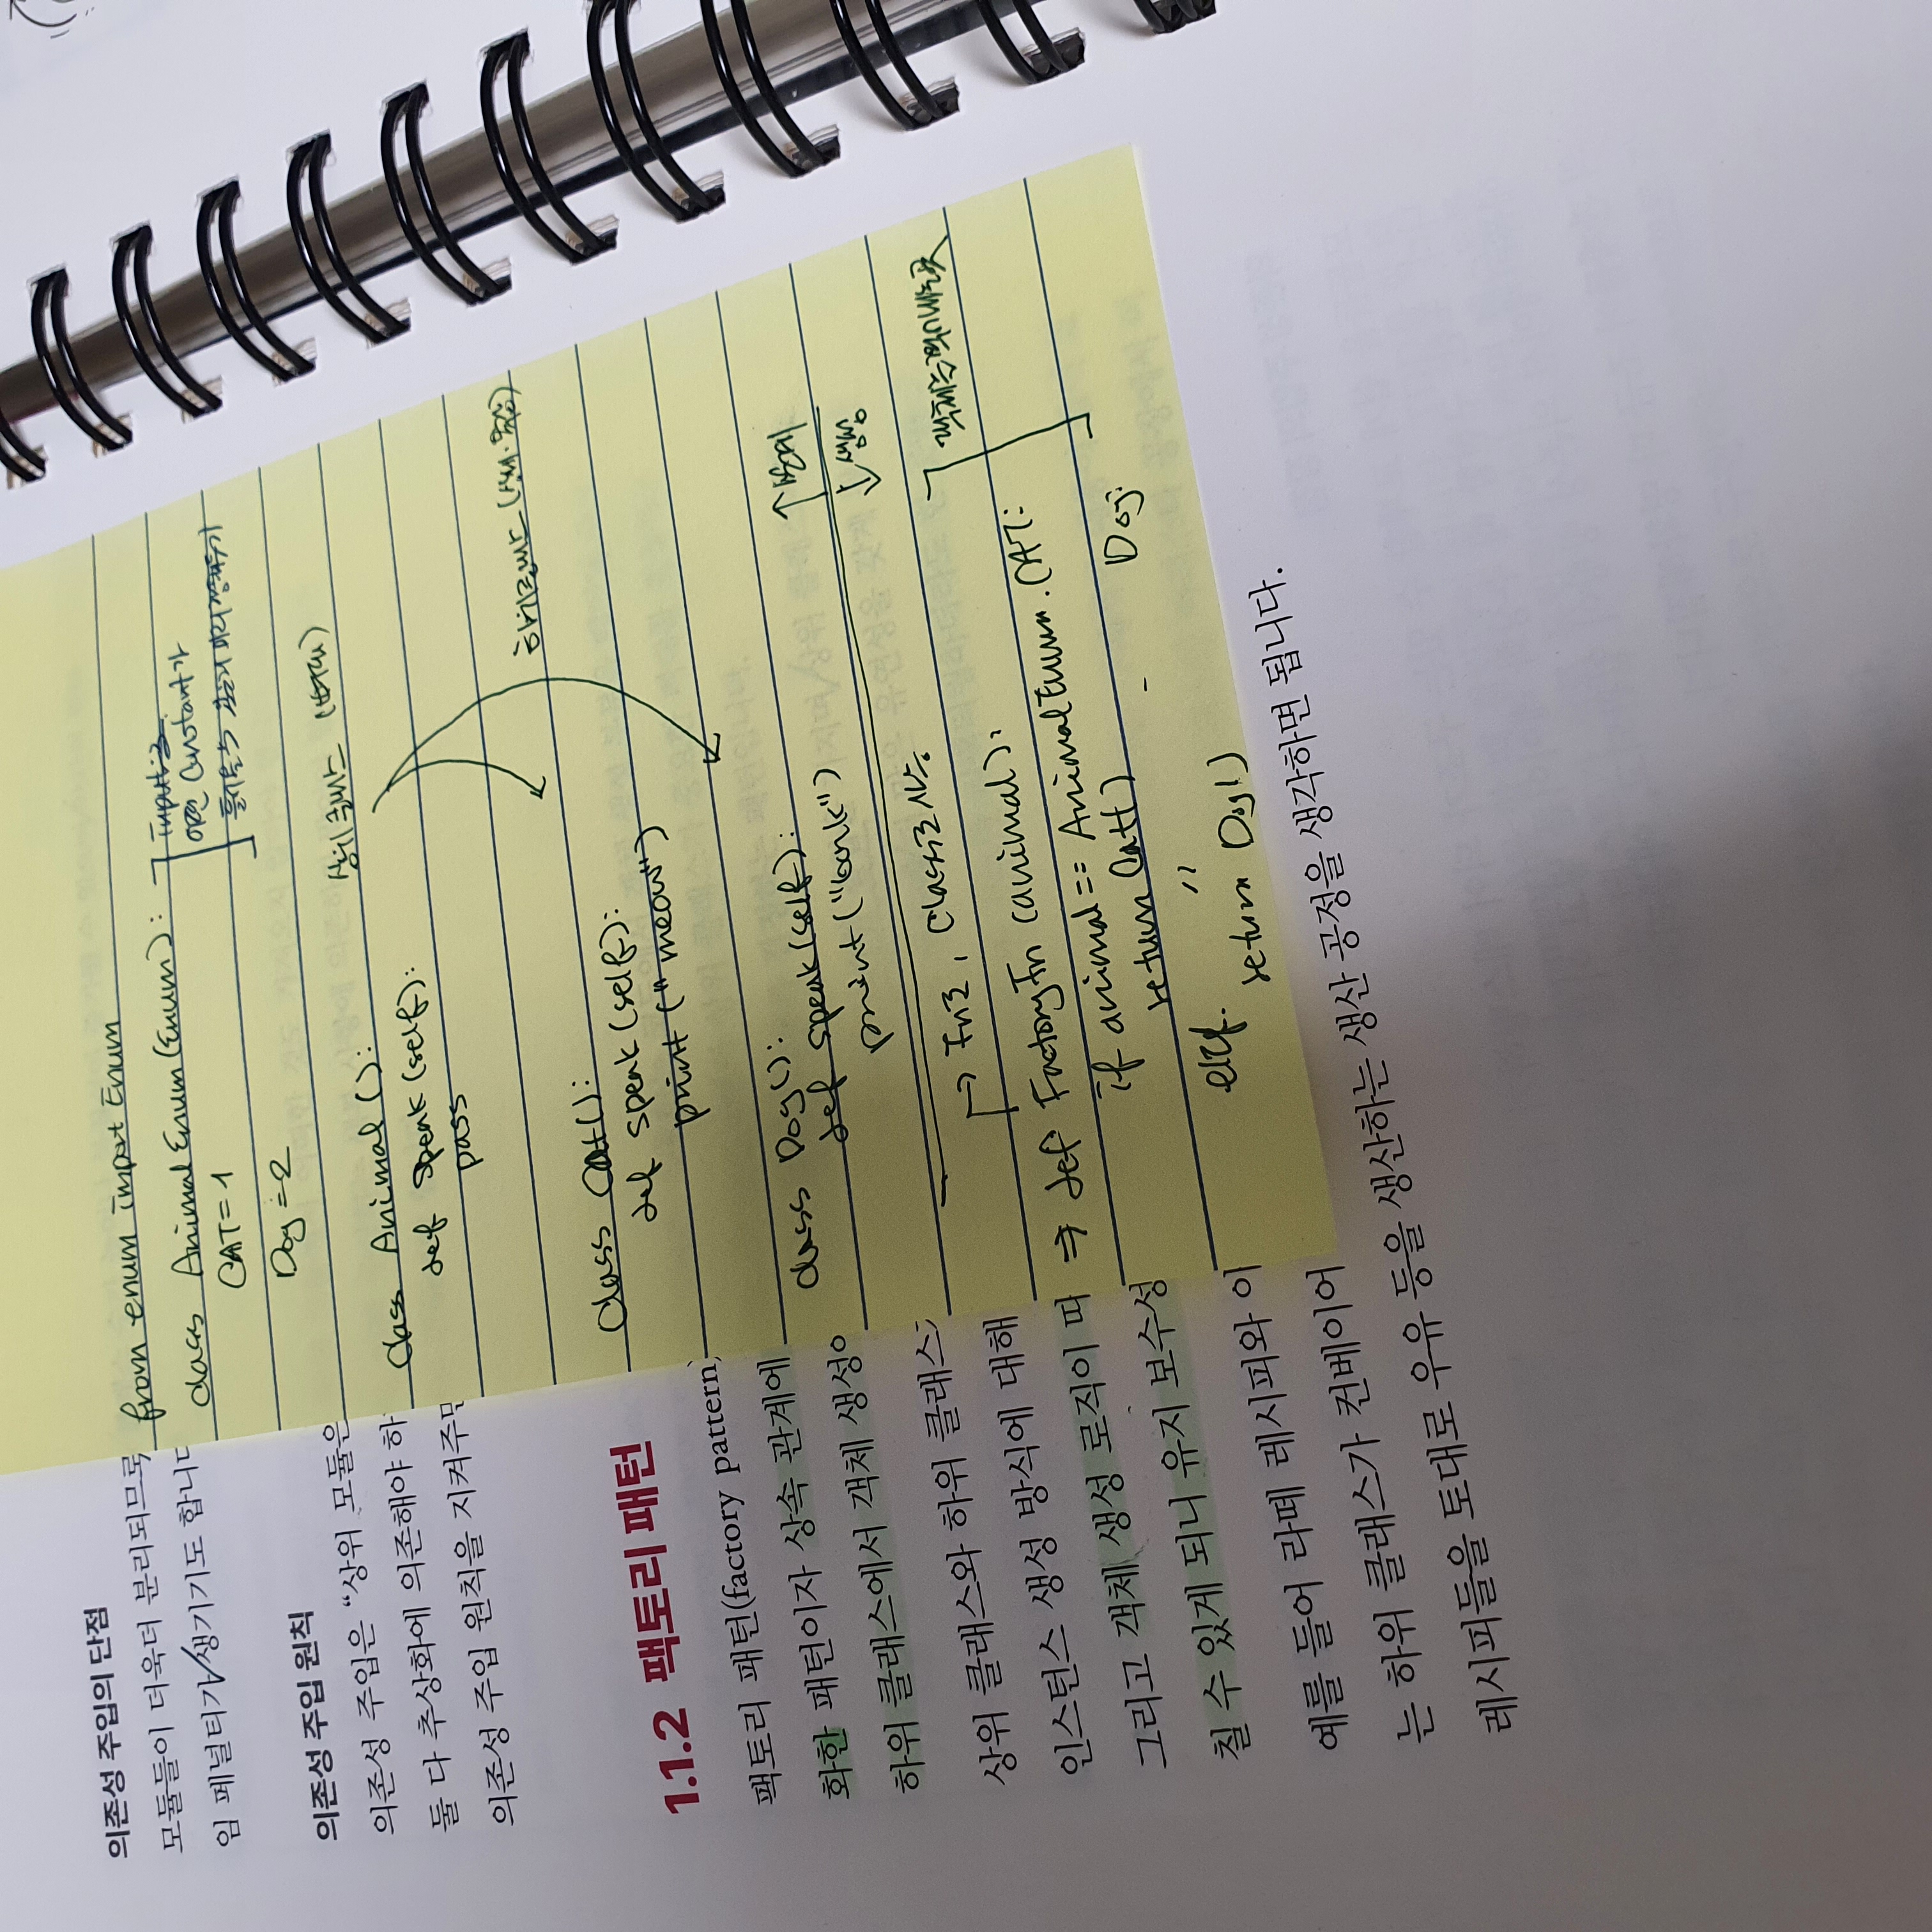 의존성 주입의 단점
모듈들이 더욱더 분리되므로
임 페널티가 생기기도 합니다
의존성 주입 원칙
의존성 주입은 “상위 모듈은
둘 다 추상화에 의존해야 하
의존성 주입 원칙을 지켜주면
1.1.2 팩토리 패턴
팩토리 패턴(factory pattern)
화한 패턴이자 상속 관계에
하위 클래스에서 객체 생성
상위 클래스와 하위 클래스
인스턴스 생성 방식에 대해
그리고 객체 생성 로직이 따
칠 수 있게 되니 유지 보수성
예를 들어 라떼 레시피와 아
는 하위 클래스가 컨베이어
레시피들을 토대로 우유 등을 생산하는 생산 공정을 생각하면 됩니다.
from enum import Enum
class AnimalEnum(Enum):
CAT=1
Dog=2
input으로
어떤 Constant가
들어올 수 있는지 미리 정해두기
class Animal():
def speak(self):
pass
상위클래스 (뼈대)
하위클래스
class Cat():
def speak(self):
print("meow")
class Dog():
def speak(self):
print("bark")
↑ 설계
↓ 생성
→ Fn로, Class로 사능
⇒ def FactoryFn (animal):
if animal == AnimalEnum.CAT:
return Cat()
elif. " - Dog:
return Dog()
객체를 찍어내는 곳